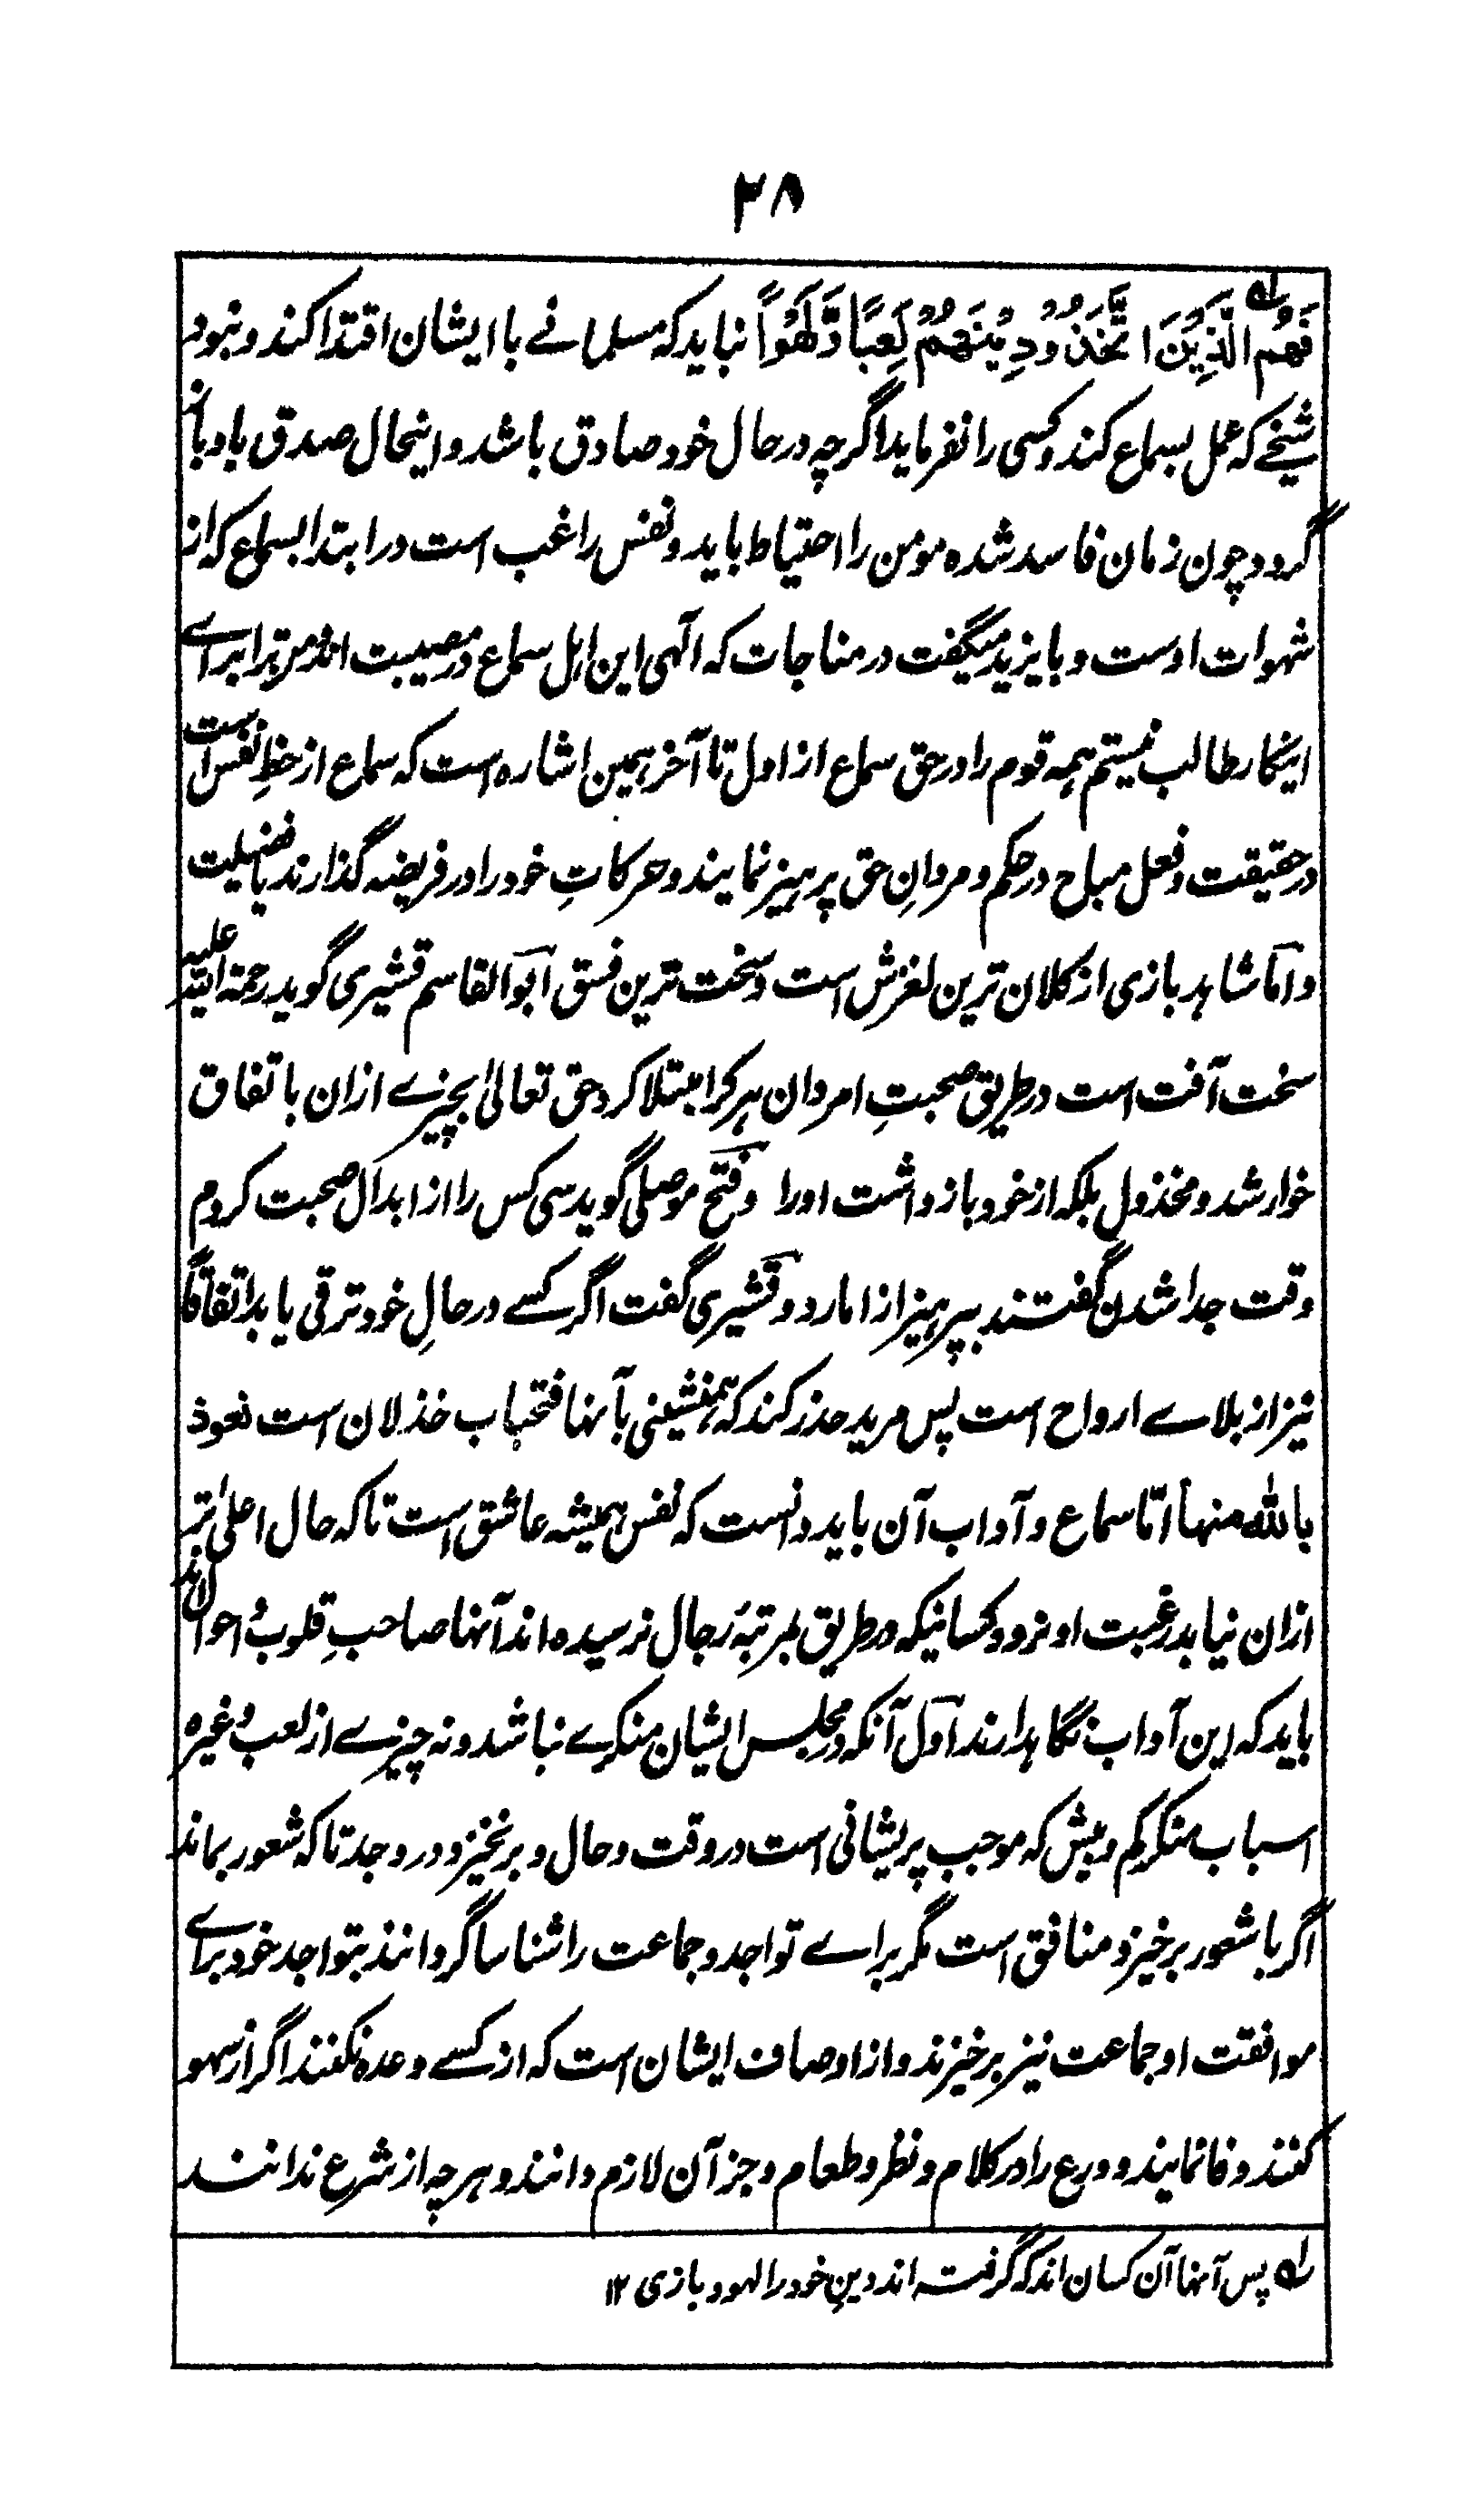 ۲۸
فَهُمُ الَّذِیْنَ اتَّخَذُوْا دِیْنَهُمْ لَعِبًا وَّلَهْوًا نباید که مسلمانے با ایشان اقتدا کند و نبود
شیخے که عمل بسماع کند و کسی را نفرماید اگرچه در حال خود صادق باشد و اینحال صدق باو باز
گردد چون زمان فاسد شده مومن را احتیاط باید و نفس راغب است در ابتدا بسماع که از
شهوات اوست و بایزید میگفت در مناجات که الٰهی این اهل سماع در مصیبت اند مرا برای
اینکار طالب نیستم همه قوم را در حق سماع از اول تا آخر همین اشاره است که سماع از حظِ نفس است
در حقیقت و فعل مباح در حکم و مردانِ حق پرهیز نمایند و حرکاتِ خود را در فریضه گذارند یا فضیلت
و امّا شاهد بازی از کلان ترین لغزش است و سخت ترین فسق ابوالقاسم قشیری گوید رحمة الله علیه
سخت آفت است در طریق صحبتِ امردان هر کرا مبتلا کرد حق تعالیٰ بچیزے ازان باتفاق
خوار شد و مخذول بلکه از خود باز داشت اورا و فتح موصلی گوید سی کس را از ابدال صحبت کردم
وقت جدا شدن گفتند بپرهیز از امارد و قشیری گفت اگر کسے در حالِ خود ترقی یابد اتفاقاً
نیز از بلاے ارواح است پس مرید حذر کند که همنشینی بآنها فتحباب خذلان است نعوذ
بالله منها امّا سماع و آداب آن باید دانست که نفس همیشه عاشق است تاکه حال اعلیٰ تر
ازان نیابد رغبت او نرود و کسانیکه در طریق بمرتبهٔ رجال نرسیده اند آنها صاحبِ قلوب و احوال اند
باید که این آداب نگاهدارند اول آنکه در مجلس ایشان منکرے نباشد و نه چیزے از لعب و غیره
اسباب منکر کم و بیش که موجب پریشانی است در وقت و حال و برنخیزد در وجد تاکه شعور بماند
اگر باشعور برخیزد منافق است مگر براے تواجد و جماعت را شناسا گردانند بتواجد خود براے
موافقت او جماعت نیز برخیزند و از اوصاف ایشان است که از کسے وعده نکنند اگر از سهو
کنند وفا نمایند و ورع را در کلام و نظر و طعام و جز آن لازم دانند و هرچه از شرع ندانند
له پس آنها آن کسان اند که گرفته اند دینِ خود را لهو و بازی ۱۲